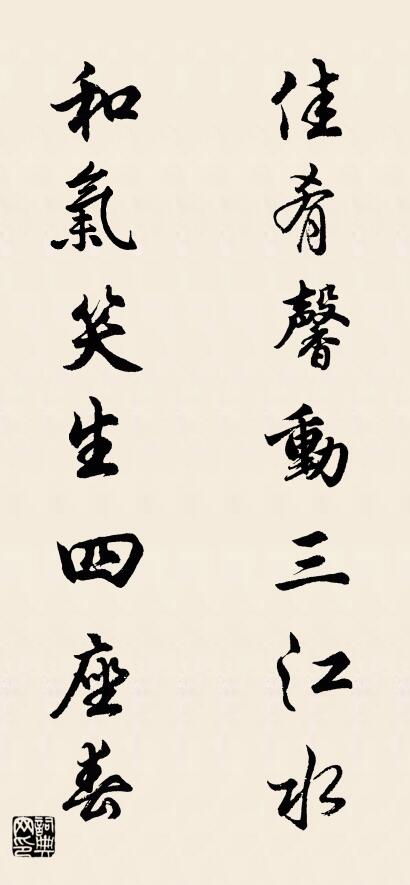 佳肴馨動三江水
和氣笑生四座春
詞典網印